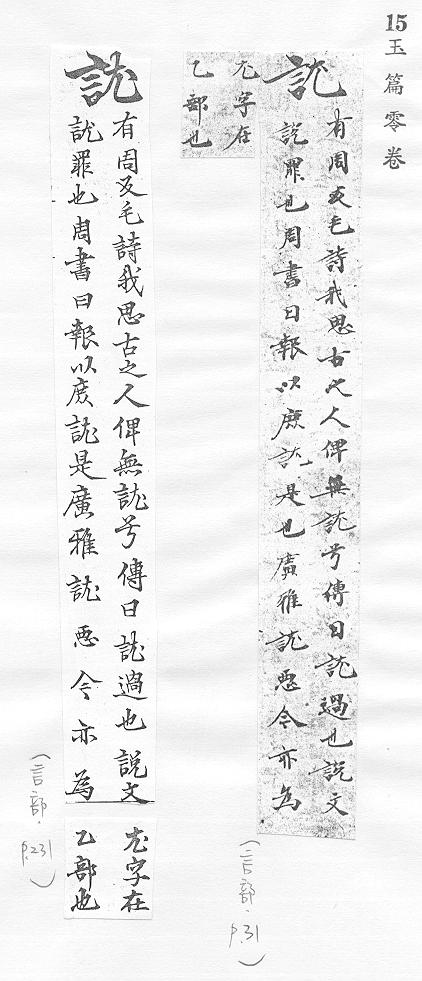 15 玉篇零卷
訧
有周反毛詩我思古之人俾無訧兮傳曰訧過也說文
說罪也周書曰報以庶訧是也廣雅訧惡今亦為
尤字在
乙部也
(言部.p.31)
訧
有周反毛詩我思古之人俾無訧兮傳曰訧過也說文
訧罪也周書曰報以庶訧是廣雅訧惡今亦為
尤字在
乙部也
(言部.p.231)